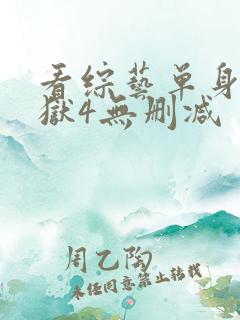 看综藝单身
獄4無刪减
周乙陶
未经同意禁止转载